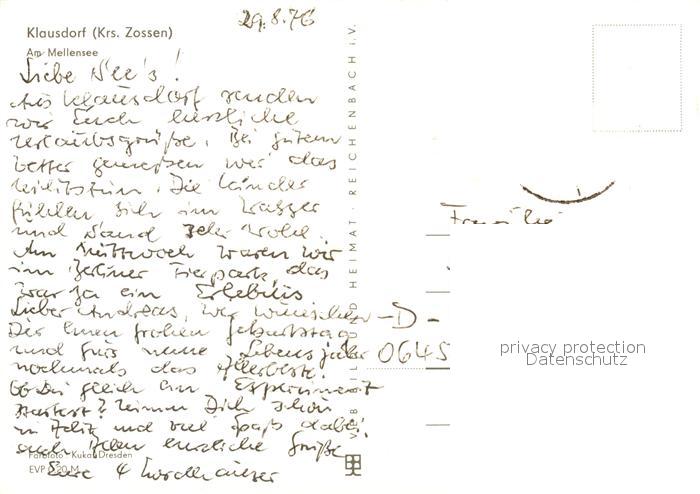 29.8.76
Klausdorf (Krs. Zossen)
Am Mellensee
Liebe Nee's!
Aus Klausdorf senden
wir Euch herzliche
Urlaubsgrüße. Bei gutem
Wetter genießen wir das
Die Kinder
fühlen sich im Wasser
und Sand sehr wohl.
Am Mittwoch waren wir
im Berliner Tierpark, das
war ja ein Erlebnis
Lieber Andreas, wir wünschen
Dir einen frohen Geburtstag
und fürs neue Lebensjahr
nochmals das Allerbeste.
Ob Du gleich ein Experiment
startest? Nimm Dich schön
in Acht und viel Spaß dabei!
Euch allen herzliche Grüße
Eure 4 Nordhäuser
Farbfoto: Kukat Dresden
EVP 0,20 M
VEB BILD UND HEIMAT · REICHENBACH i. V.
Familie
-D-
0645
privacy protection
Datenschutz